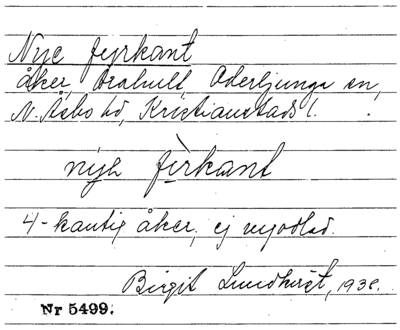 Nye fyrkant
åker, Drahult, Oderljunga sn,
N. Åsbo hd, Kristianstads l.
nye fìrkant
4-kantig åker, ej nyodlad.
Birgit Lundqvist, 1938.
Nr 5499.